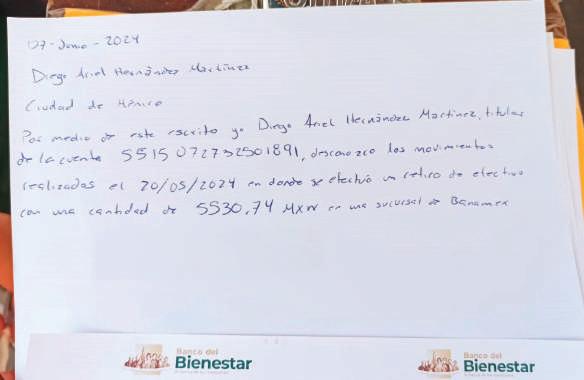 07-Junio-2024
Diego Ariel Hernández Martínez
Ciudad de México
Por medio de este escrito yo Diego Ariel Hernández Martínez, titular
de la cuenta 5515072732501891, desconozco los movimientos
realizados el 20/05/2024 en donde se efectuó un retiro de efectivo
con una cantidad de 5530.74 MXN en una sucursal de Banamex
Banco del
Bienestar
Banco del
Bienestar